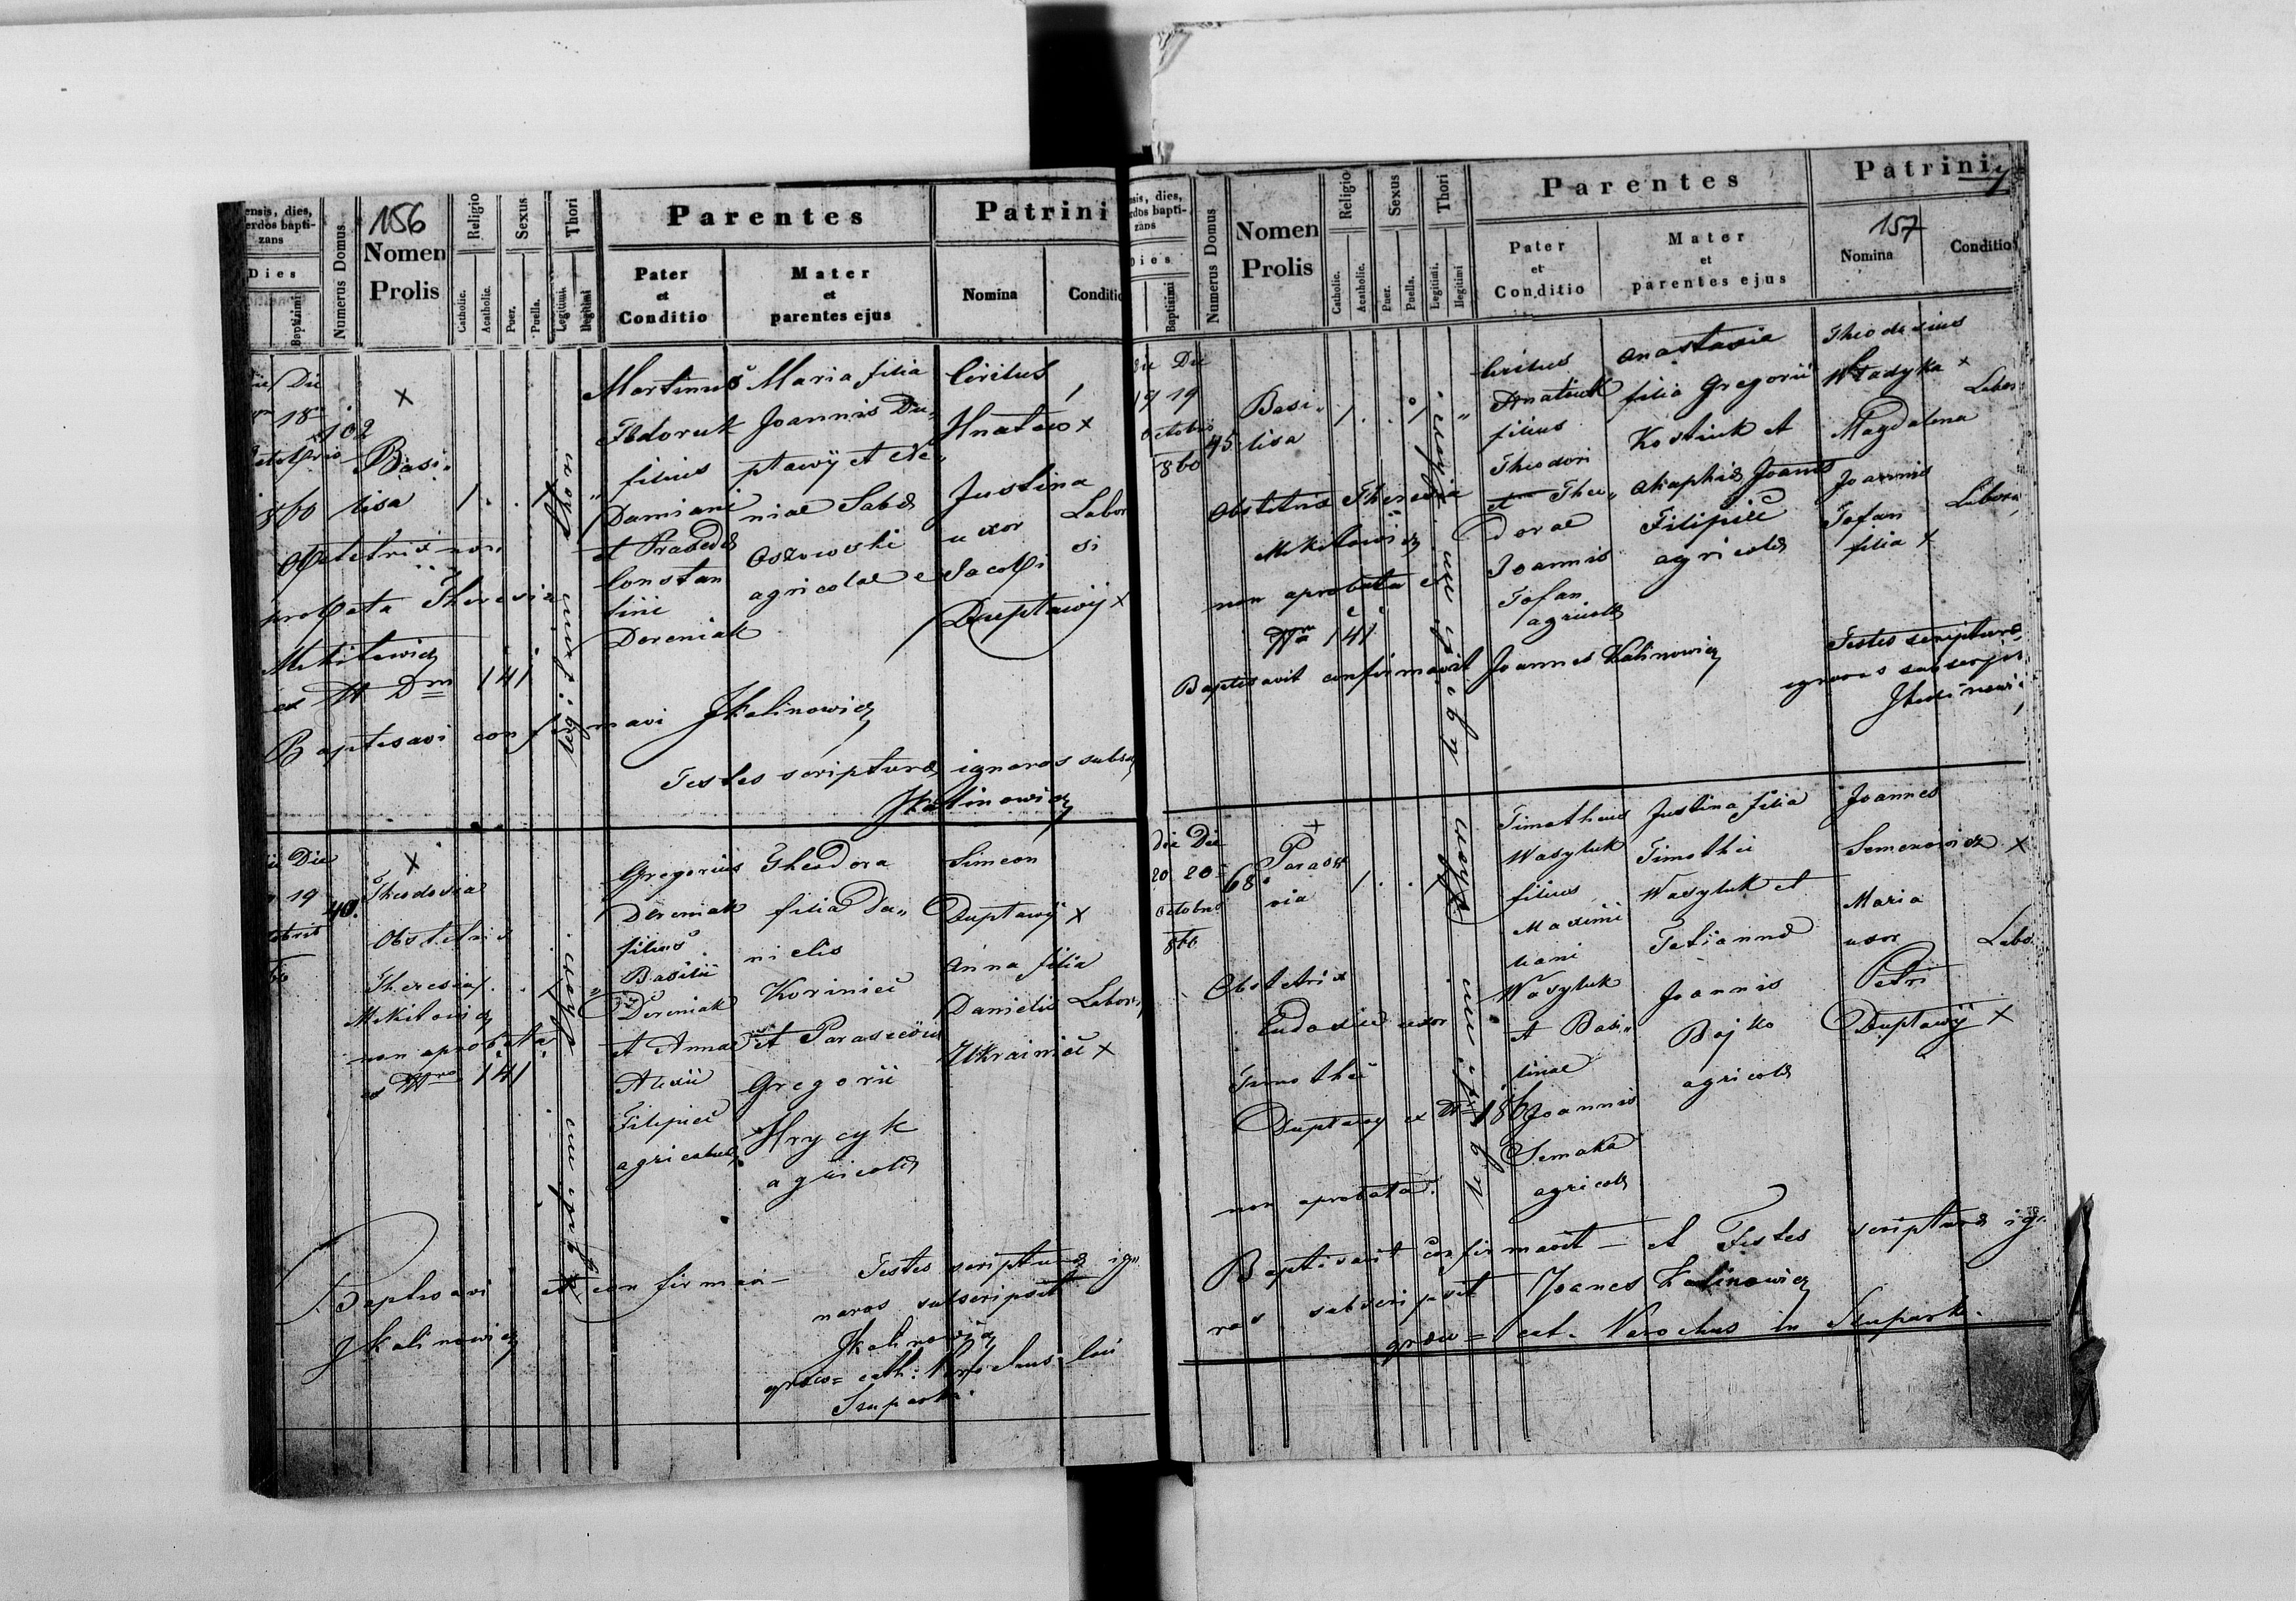 156
ensis, dies,
erdos bapti-
zans
Dies
Baptisimi
Numerus Domus
Nomen
Prolis
Religio
Catholic.
Acatholic.
Sexus
Puer.
Puella.
Thori
Legitimi.
Illegitimi
Parentes
Pater
et
Conditio
Mater
et
parentes ejus
Patrini
Nomina
Conditio
Die
18
102
Basi„
lisa
1
Obstetrix non
probata Theresia
Mikitowicz
141
Baptisavi confirmavi JKalinowicz
Martinus
Fedoruk
filius
Damiani
et Praxedis
Constan
tini
Dereniak
Maria filia
Joannis Du„
ptawÿ et
niae Sabæ
Oszowski
agricolae
Cirilus
Hnatiw x
Justina
uxor
Jacobi
Duptawÿ x
Labor
si
Testes scripturæ ignaros subsc
JKalinowicz
Die
19
40.
Theodosia
Obstetrix
Theresia
Mikitowicz
non aprobata
141
Gregorius
Dereniak
filius
Basilii
Dereniak
et Annae
Alexii
Filipieč
agricolæ
Theodora
filia Da„
nielis
Koriniec
et Parascevia
Gregorii
Hrycyk
agricolæ
Simeon
Duptawÿ x
Anna filia
Danielis Labor
Ukrainieč x
Baptisavi et confirmavi —
JKalinowicz
Testes scripturæ ig„
naros subscripsit
JKalinowicz
græco = cath: Parochus loci
Szuparka.
157
dies,
rdos bapti-
zans
Dies
Baptisimi
Numerus Domus
Nomen
Prolis
Religio
Catholic.
Acatholic.
Sexus
Puer.
Puella.
Thori
Legitimi.
Illegitimi
Parentes
Pater
et
Conditio
Mater
et
parentes ejus
Patrini
Nomina
Conditio
Die
19
Octobris
860
45
Basi„
lisa
Obstetrix Theresia
Mikitowicz
non aprobata
141
Cirilus
Hnatiuk
filius
Theodori
et Theo„
dorae
Joannis
Tofan
agricolæ
Anastasia
filia Gregorii
Kostiuk et
Agaphiæ Joannis
Filipieč
agricolæ
Theodosius
Wladyka x
Magdalena
Joannis
Tofan
filia x
Labor
Labora
Baptisavit confirmavit Joannes Kalinowicz
Testes scripturæ
ignaros subscrips
JKalinowi
die Die
20 20
Octobris
860
68
Parasce
via
Obstetrix
Eudosia uxor
Timothei
Duptawy ex 186
non aprobata.
Timotheus
Wasyluk
filius
Maximi
liani
Wasyluk
et Basi„
linae
Joannis
Semaka
agricolæ
Justina filia
Timothei
Wasyluk et
Tatiannæ
Joannis
Bojko
agricolæ
Joannes
Semenowicz x
Maria
uxor
Petri
Duptawÿ x
Labo
Baptisavit confirmavit — et Testes scripturæ ig„
ros subscripsit Joanes Kalinowicz
græco = cat. Parochus in Szuparka.